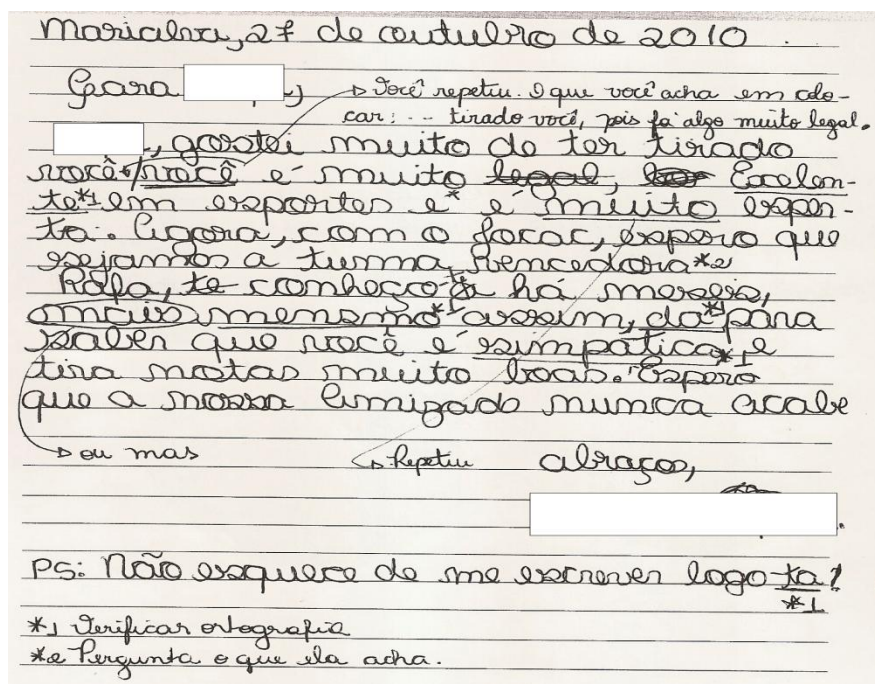 Marialva, 27 de outubro de 2010.
Cara ,
→ Você repetiu. O que você acha em colo-
car: ... tirado você, pois fa algo muito legal.
, gostei muito de ter tirado
você. você é muito legal, Excelen-
te*1 em esportes e* é muito esper-
ta. Agora, com o focac, espero que
sejamos a turma Vencedora*2
Rafa, te conheço já há meses,
mais mensmo*1 assim, da*1 para
saber que você é simpatica*1 e
tira notas muito boas. Espero
que a nossa Amizade nunca acabe
→ ou mas
→ Repetiu
abraços,
PS: Não esquece de me escrever logo ta!
*1
*1 Verificar ortografia
*2 Pergunta o que ela acha.